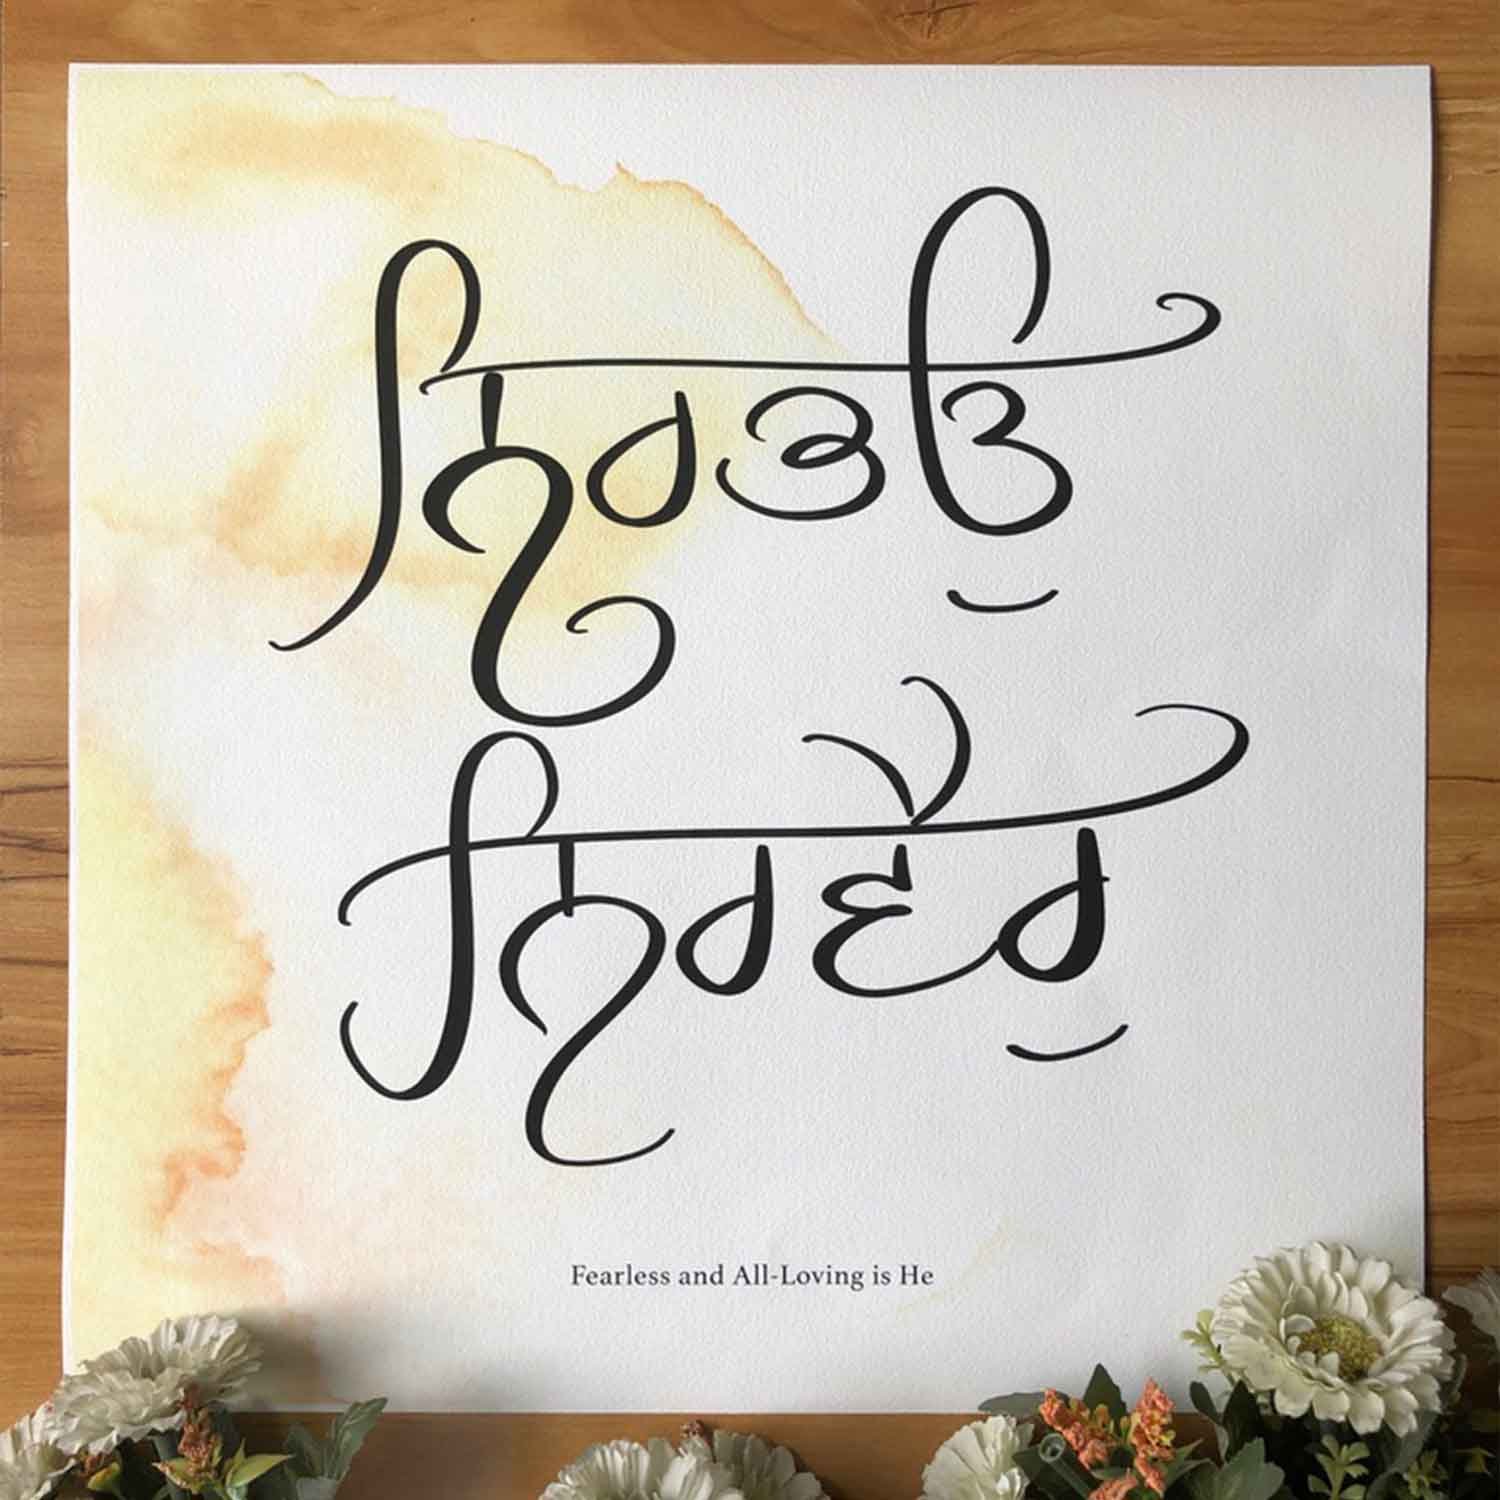 ਨਿਰਭਉ
ਨਿਰਵੈਰੁ
Fearless and All-Loving is He